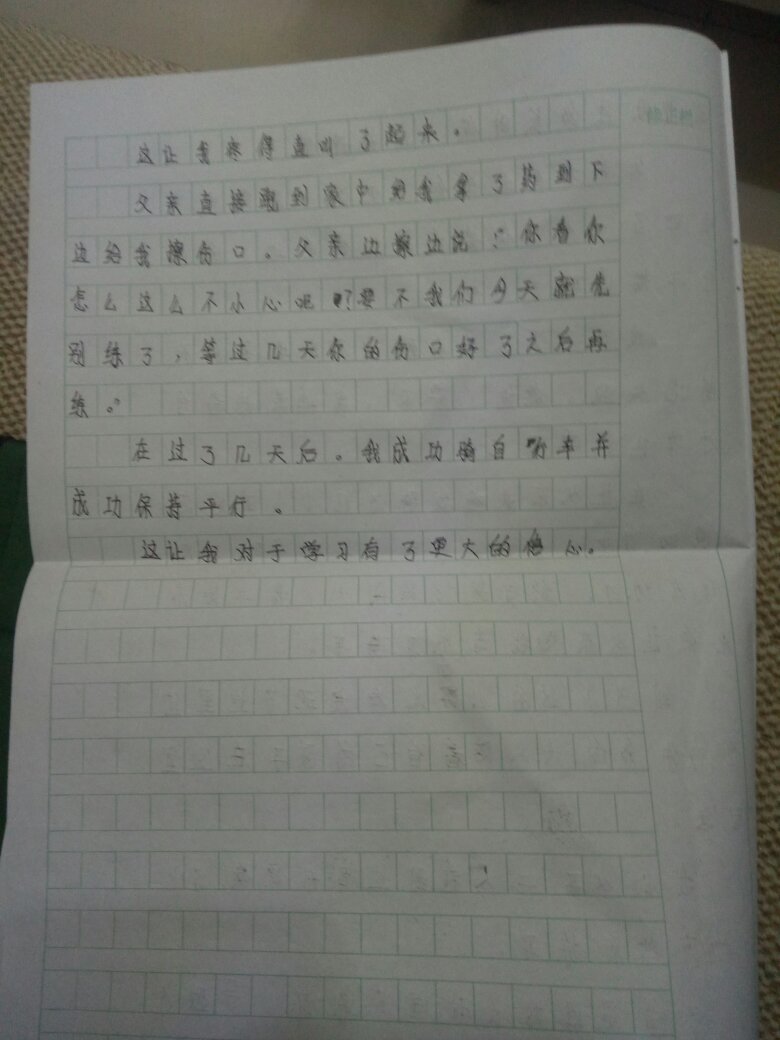 这让我疼得直叫了起来。
父亲直接跑到家中给我拿了药到下
边给我擦伤口。父亲边擦边说:“你看你
怎么这么不小心呢?要不我们今天就先
别练了,等过几天你的伤口好了之后再
练。”
在过了几天后。我成功骑自行车并
成功保持平行。
这让我对于学习有了更大的信心。